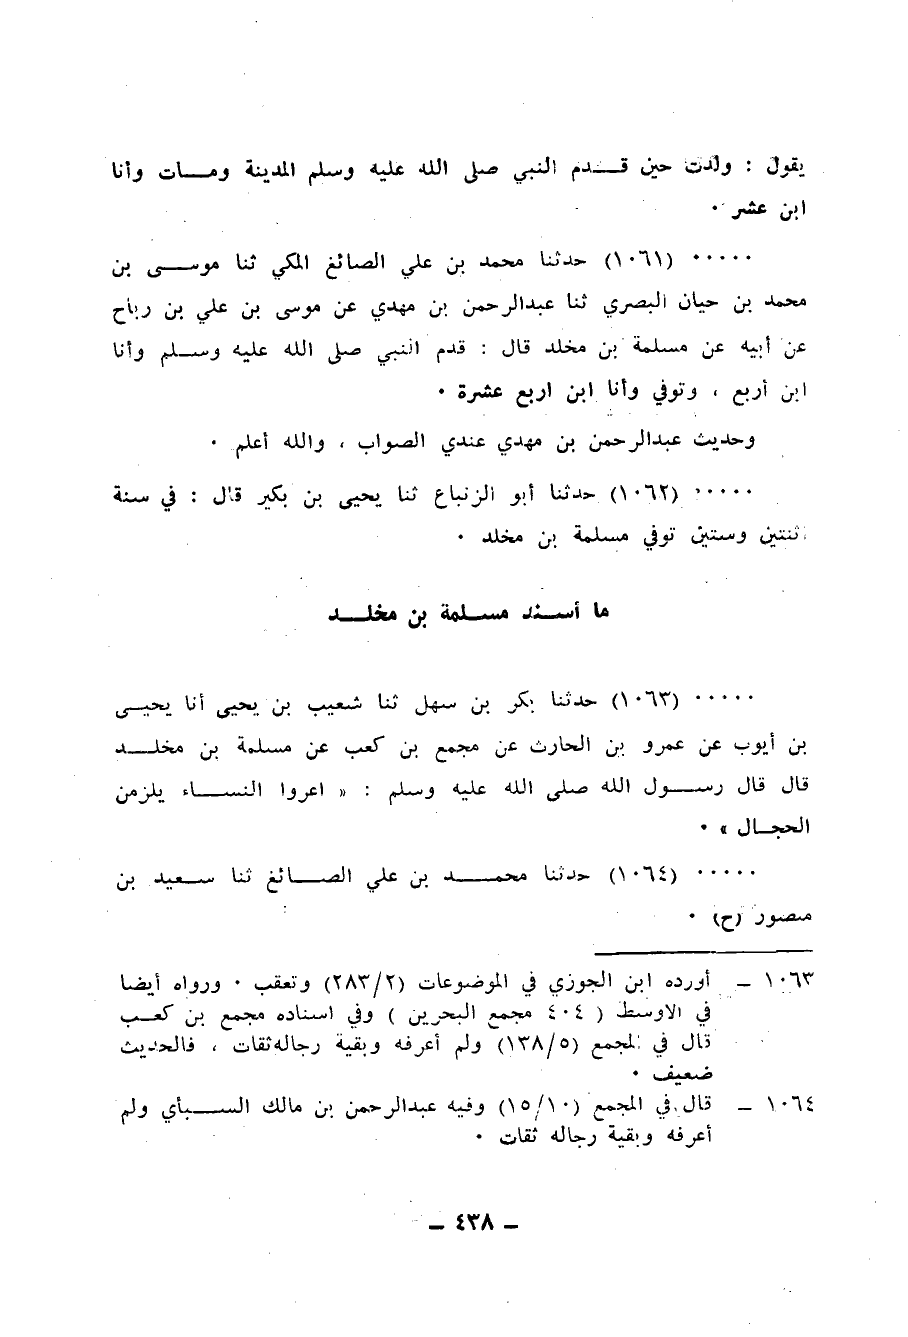 يقول : ولدت حين قـــدم النبي صلى الله عليه وسلم المدينة ومــات وأنا
ابن عشر ٠
٠٠٠٠٠ (١٠٦١) حدثنا محمد بن علي الصائغ المكي ثنا موســى بن
محمد بن حيان البصري ثنا عبدالرحمن بن مهدي عن موسى بن علي بن رباح
عن أبيه عن مسلمة بن مخلد قال : قدم النبي صلى الله عليه وســلم وأنا
ابن أربع ، وتوفي وأنا ابن اربع عشرة ٠
وحديث عبدالرحمن بن مهدي عندي الصواب ، والله أعلم ٠
٠٠٠٠٠ (١٠٦٢) حدثنا أبو الزنباع ثنا يحيى بن بكير قال : في سنة
ثنتين وستين توفي مسلمة بن مخلد ٠
ما أســند مســلمة بن مخلــــد
٠٠٠٠٠ (١٠٦٣) حدثنا بكر بن سهل ثنا شعيب بن يحيى أنا يحيــى
بن أيوب عن عمرو بن الحارث عن مجمع بن كعب عن مسلمة بن مخلـــد
قال قال رســـول الله صلى الله عليه وسلم : « اعروا النســـاء يلزمن
الحجــال » ٠
٠٠٠٠٠ (١٠٦٤) حدثنا محمـــــد بن علي الصـــائغ ثنا ســعيد بن
منصور (ح) ٠
١٠٦٣ ـ أورده ابن الجوزي في الموضوعات (٢/ ٢٨٣) وتعقب ٠ ورواه أيضا
في الاوسط ( ٤٠٤ مجمع البحرين ) وفي اسناده مجمع بن كعــب
قال في المجمع (٥/ ١٣٨) ولم أعرفه وبقية رجاله ثقات ، فالحديث
ضعيف ٠
١٠٦٤ ـ قال في المجمع (١٠/ ١٥) وفيه عبدالرحمن بن مالك الســـبأي ولم
أعرفه وبقية رجاله ثقات ٠
ـ ٤٣٨ ـ